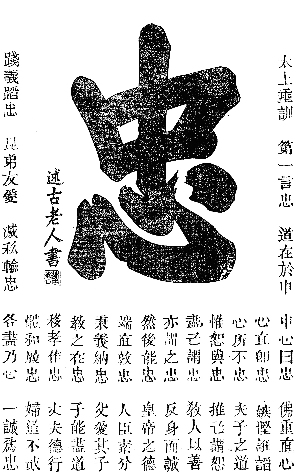 忠
太上垂訓 第一言忠 道在於中
中心曰忠 佛重直心
心直卽忠
心所不忠 夫子之道
惟恕與忠 推己謂恕
盡己謂忠 教人以善
亦謂之忠 反身而誠
然後能忠 帝之德
端宜效忠 人臣素分
秉彝納忠 父愛其子
教之在忠 子能盡道
移孝作忠 丈夫德行
和展忠 婦道不忒
各盡乃心 一誠篤忠
踐義蹈忠 昆弟友愛 滅私輸忠
述古老人書